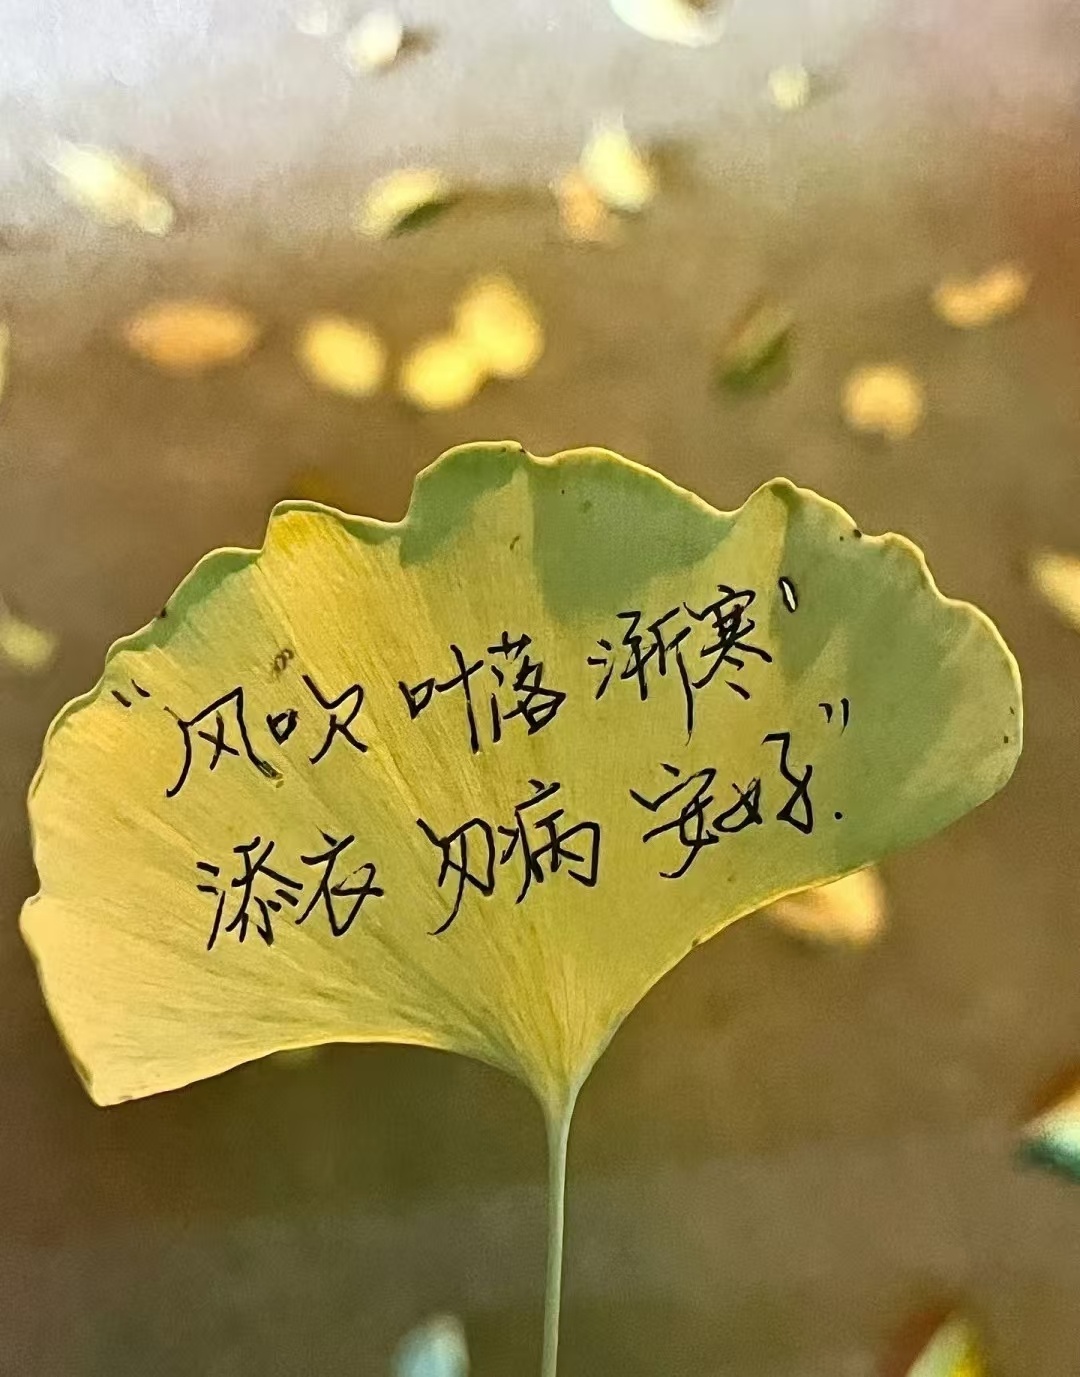 “风吹 叶落 渐寒，
添衣 勿病 安好”.